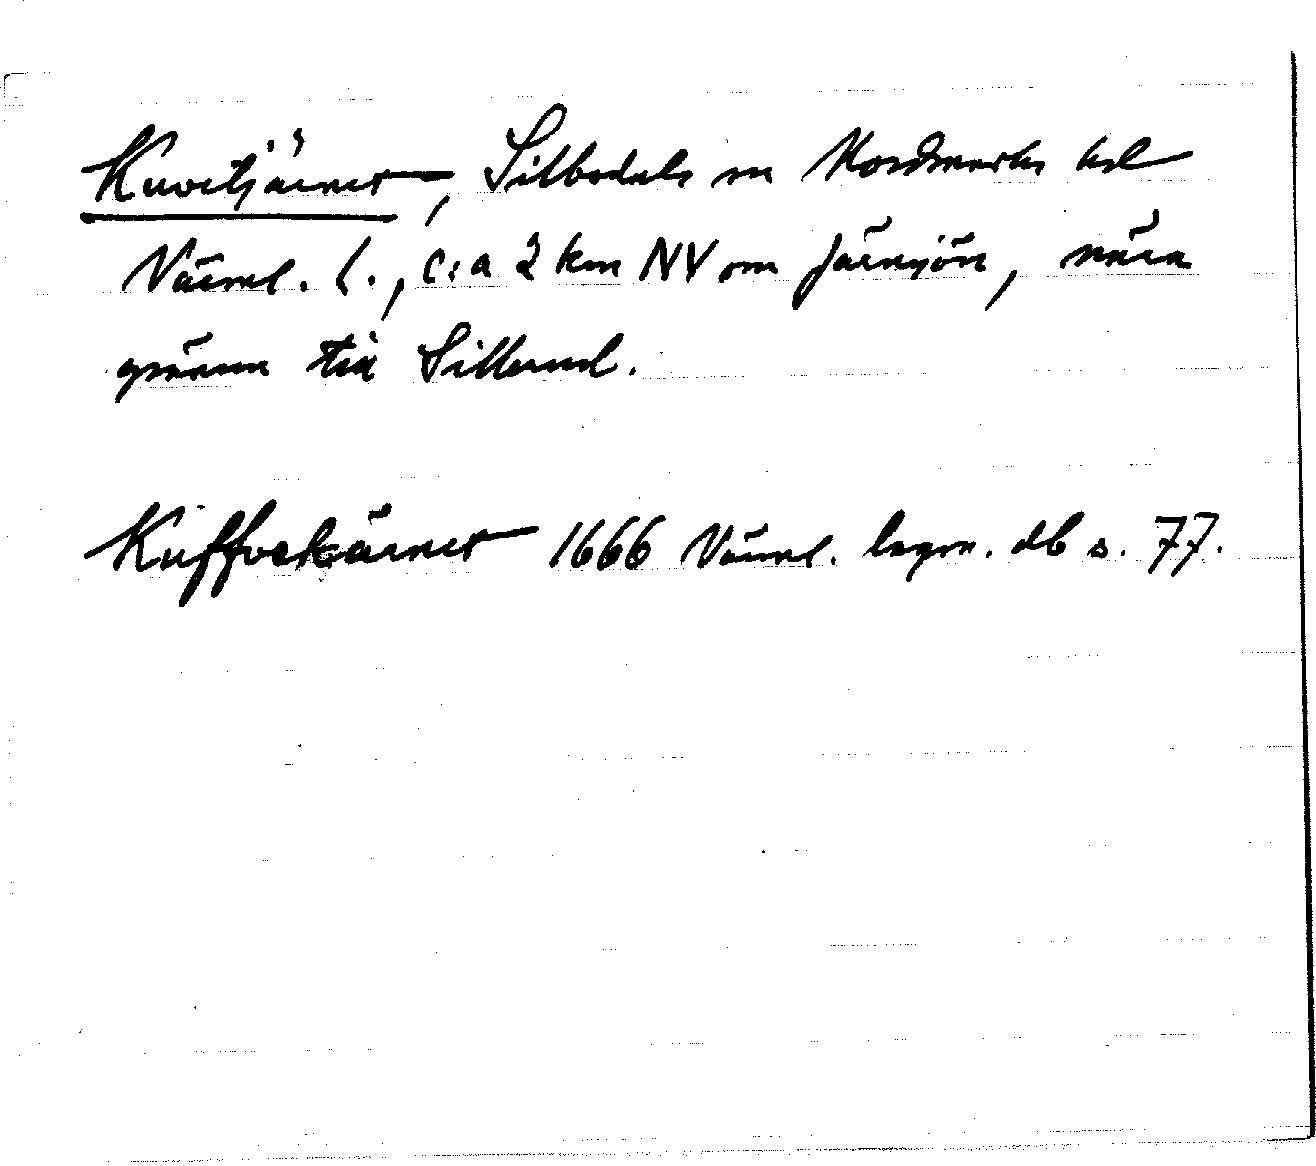 Kuvetjärnet, Silbodals sn Nordmarks hd
Värml. l., c:a 2 km NV om Järnsjön, nära
gränsen till Sillerud.
Kuffvetkärnet 1666 Värml. lagm. db s. 77.